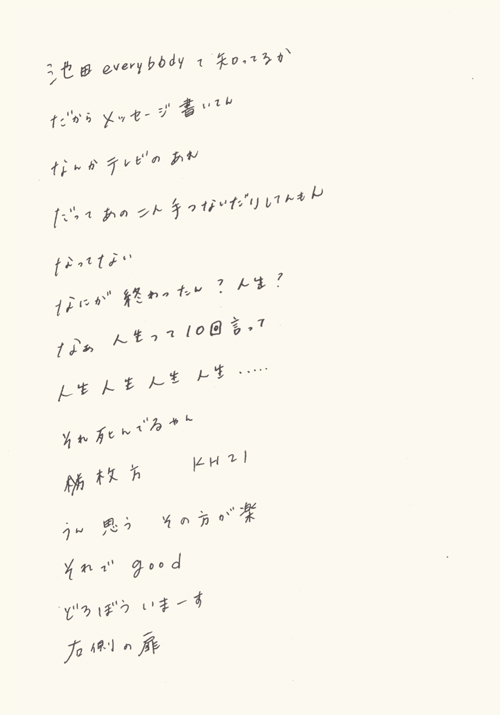 池田 everybody て 知ってるか
だから メッセージ 書いてん
なんか テレビの あれ
だって あの 二人 手つないだりしてんもん
なってない
なにが 終わったん？ 人生？
なぁ 人生って 10回言って
人生 人生 人生 人生 ‥‥‥
それ 死んでるやん
枚方 KH21
うん 思う その方が楽
それで good
どろぼう いまーす
右側の扉